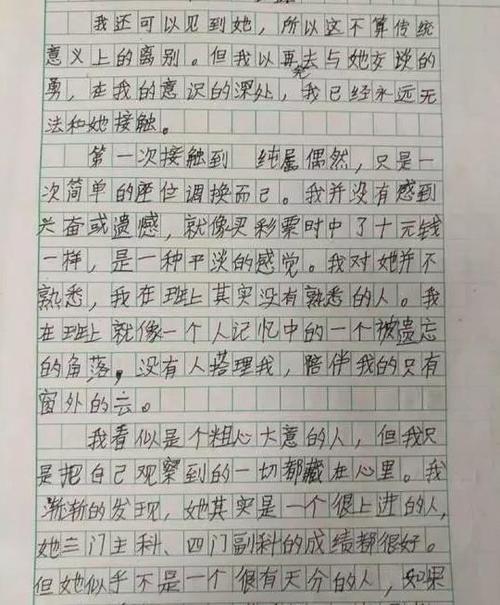 我还可以见到她，所以这不算传统
意义上的离别。但我以再去与她交谈的
勇，在我的意识的深处，我已经永远无
法和她接触。
第一次接触到 纯属偶然，只是一
次简单的座位调换而已。我并没有感到
兴奋或遗憾，就像买彩票时中了十元钱
一样，是一种平淡的感觉。我对她并不
熟悉，我在班上其实没有熟悉的人。我
在班上就像一个人记忆中的一个被遗忘
的角落，没有人搭理我，陪伴我的只有
窗外的云。
我看似是个粗心大意的人，但我只
是把自己观察到的一切都藏在心里。我
渐渐的发现，她其实是一个很上进的人，
她三门主科、四门副科的成绩都很好。
但她似乎不是一个很有天分的人，如果